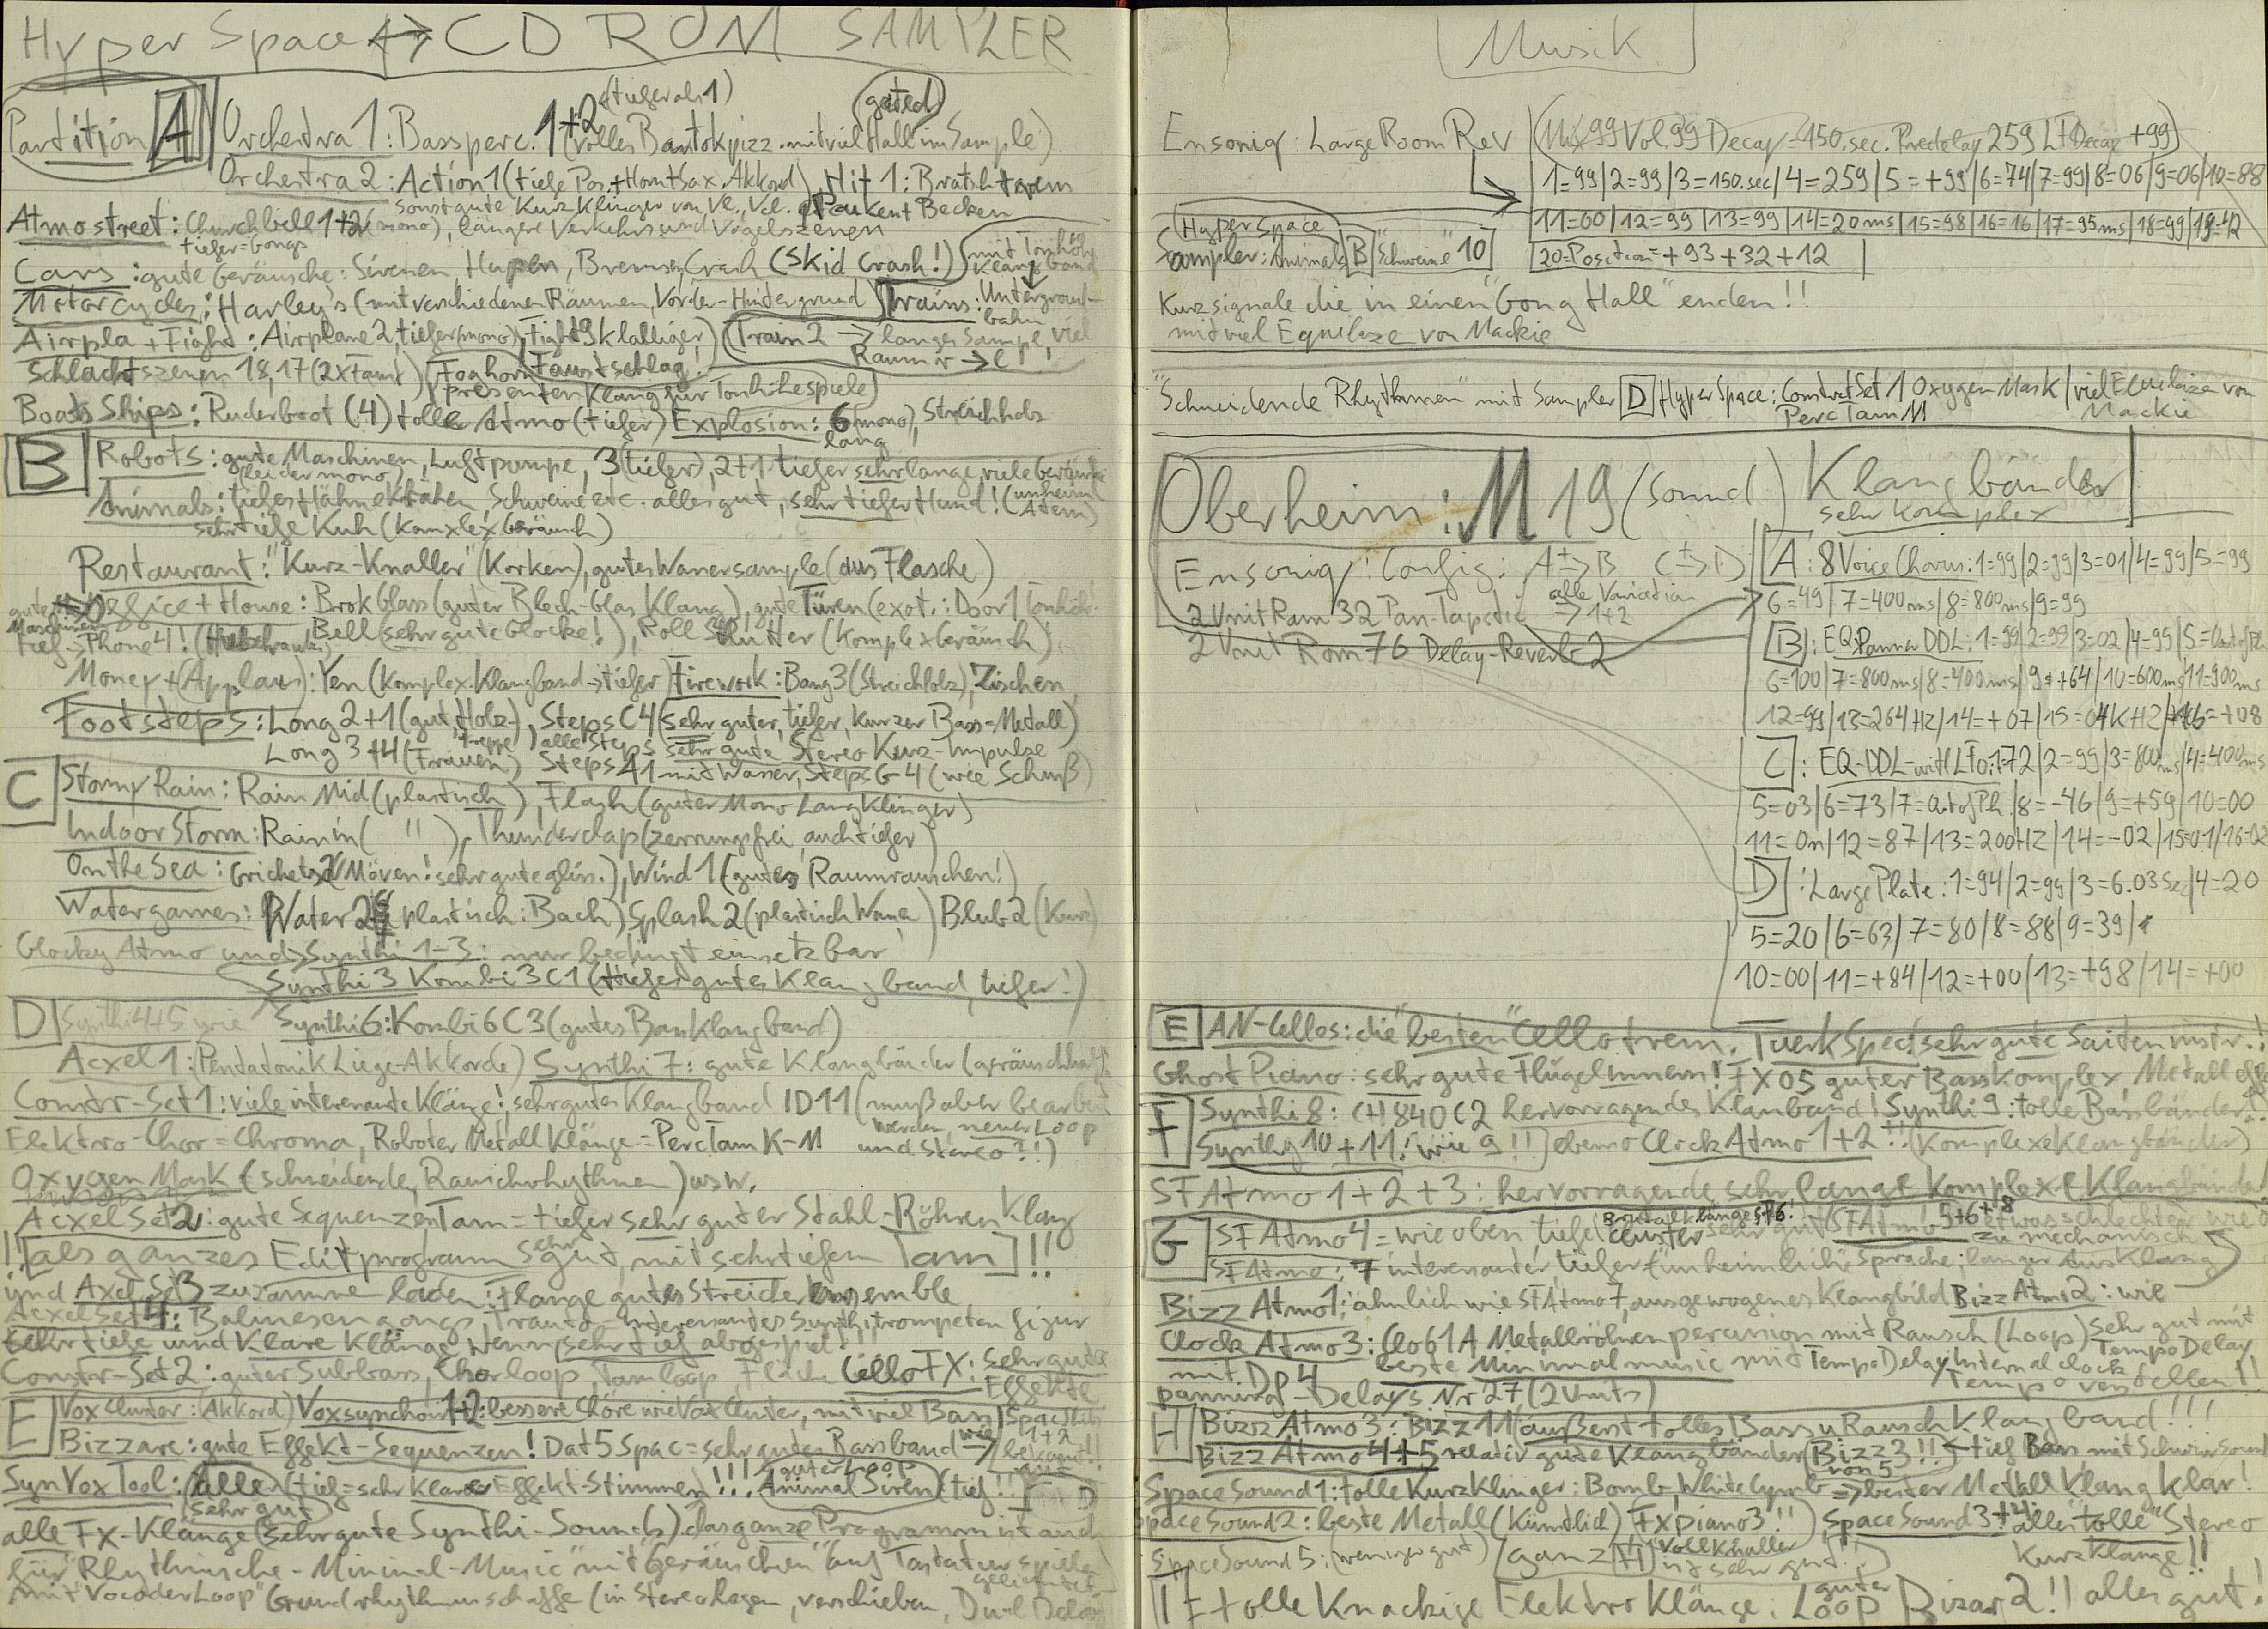 Hyper Space ↔ CD ROM SAMPLER
Partition A Orchestra 1: Bassperc. 1+2 (tiefer als 1) (tolles Bartokpizz. mit viel Hall im Sample) gated
Orchestra 2: Action 1 (tiefe Pos. + Horn + Sax. Akkord), Hit 1: Bratschtrem
sonst gute Kurzklinger von Vl., Vcl. Pauken + Becken
Atmostreet: Churchbell 1+2 (mono), längere Verkehrs und Vogelszenen
tiefer = Gongs
Cars: gute Geräusche: Sirenen, Hupen, Bremsen, Crash (Skid Crash!) mit Tonhöh Klangband
Motorcycles: Harley's (mit verschiedenen Räumen, Vorder-Hintergrund) Trains: Untergrundbahn
Airpla + Fight: Airplane 2, tiefer (mono), Fight 9 Klalliger, (Train 2 → langes Sample, viel Raum r → l
Schlachtszenen 18, 17 (2xtamt) Foghorn Faustschlag.
präsenten Klang für Tonhöhespiele)
Boats Ships: Ruderboot (4) tolle Atmo (tiefer) Explosion: 6 (mono), Streichholz
lang
B Robots: gute Maschinen, Luftpumpe, 3 (tiefer), 2+1 tiefer sehr lange, viele Geräusche
(leider mono)
Animals: tiefes Hähnekrähen, Schweine etc. alles gut, sehr tiefer Hund! (unheiml. Atem)
sehr tiefe Kuh (komplex Geräusch)
Restaurant: "Kurz-Knaller" (Korken), gutes Wassersample (aus Flasche)
gute Maschinen Office + House: Brok Glass (guter Blech-Glas Klang), gute Türen (exot.: Door 1 Tonhöhe)
tief → Phone 4! (Hubschrauber) Bell (sehr gute Glocke!), Roll Shutter (komplex Geräusch)
Money + (Applaus): Yen (komplex. Klangband → tiefer) Firework: Bang 3 (Streichholz), Zischen
Footsteps: Long 2+1 (gut, Holz), Steps C4 (sehr guter, tiefer, kurzer Bass-Metall)
Long 3+4 (Treppe Frauen) alle Steps sehr gute Stereo Kurz-Impulse
Steps A1 mit Wasser, Steps G4 (wie Schuß)
C Stormy Rain: Rain Mid (plastisch), Flash (guter Mono Langklinger)
Indoor Storm: Rainin ( " ), Thunderclap (zerrungsfrei, auch tiefer)
On the Sea: Crichets 2 (Möven! sehr gute gliss.), Wind 1 (gutes Raumrauschen!)
Watergames: Water 2 (plastisch: Bach) Splash 2 (plastisch Wanne) Blub 2 (Kurz)
Glocky Atmo und Synthi 1-3: nur bedingt einsetzbar
Synthi 3 Kombi 3C1 (tiefer gutes Klangband, tiefer!)
D Synthi 4+5 wie Synthi 6: Kombi 6C3 (gutes Bassklangband)
Acxel 1: Pentatonik Liege-Akkorde) Synthi 7: gute Klangbänder (geräuschhaft)
Constr-Set 1: viele interessante Klänge! sehr gutes Klangband ID11 (muß aber bearbeit werden, neuer Loop
Elektro-Chor = Chroma, Roboter Metallklänge = PercTam K-M und Stereo?!)
Oxygen Mask (schneidende, Rauschrhythmen) usw.
Acxel Set 2: gute Sequenzen Tam = tiefer sehr guter Stahl-Röhren Klang
!! [als ganzes Editprogramm sehr gut, mit sehr tiefen Tam] !!
und Axel Set 3 zusammen laden: Flange gutes Streicherensemble
Acxel Set 4: Balinesengongs, Tranto - interessantes Synthitrompeten figur
sehr tiefe und klare Klänge wenn sehr tief abgespielt
Constr-Set 2: guter Subbass, Chorloop, Tamloop Fläche Cello FX: sehr gute Effekte
E Vox Cluster: (Akkord) Voxsynchor 1+2: bessere Chöre wie Vox Cluster, mit viel Bass
Bizzare: gute Effekt-Sequenzen! Dat 5 Spac = sehr gutes Bassband →
SynVoxTool: alle (tief = sehr klare Effekt-Stimmen) !!! guter Loop Animal Siren (tief !!
sehr gut
alle FX-Klänge (sehr gute Synthi-Sounds) das ganze Programm ist auch
für "Rhythmische-Minimal-Music" mit "Geräuschen" auf Tastatur spielen
mit "Vocoder Loop" Grundrhythmus schaffe (in Stereo legen, verschieben, Dual Delay
Musik
Ensoniq: Large Room Rev (Mix 99 Vol. 99 Decay = 150. sec. Predelay 259 LF Decay +99)
1=99 | 2=99 | 3=150.sec | 4=259 | 5=+99 | 6=74 | 7=99 | 8=06 | 9=06 | 10=88
11=00 | 12=99 | 13=99 | 14=20ms | 15=98 | 16=16 | 17=95ms | 18=99 | 19=42
Hyper Space
Sampler: Animals B "Schweine" 10
20=Position = +93 +32 +12
Kurzsignale die in einen "Gong Hall" enden!!
mit viel Equilize von Mackie
"Schneidende Rhythmen" mit Sampler D Hyper Space: Constrct Set 1 Oxygen Mask | viel Equilize von Mackie
PercTam M
Oberheim: M 19 (Sound) Klangbänder
sehr komplex
Ensoniq: Config: A → B C → D
2 Unit Ram 32 Pan-Tapstic alle Variation → 1+2
2 Unit Rom 76 Delay-Reverb 2
A: 8 Voice Chorus: 1=99 | 2=99 | 3=01 | 4=99 | 5=99
6=49 | 7=400ms | 8=800ms | 9=99
B: EQ Panner DDL: 1=99 | 2=99 | 3=02 | 4=99 | 5=Out of Ph
6=100 | 7=800ms | 8=400ms | 9=+64 | 10=600ms | 11=900ms
12=99 | 13=264Hz | 14=+07 | 15=04KHZ | 16=+08
C: EQ-DDL-with LFO: 1=72 | 2=99 | 3=800ms | 4=400ms
5=03 | 6=73 | 7=Out of Ph. | 8=-46 | 9=+59 | 10=00
11=On | 12=87 | 13=200HZ | 14=-02 | 15=01 | 16=02
D: Large Plate: 1=94 | 2=99 | 3=6.03 Sec | 4=20
5=20 | 6=63 | 7=80 | 8=88 | 9=39 |
10=00 | 11=+84 | 12=+00 | 13=+98 | 14=+00
E AN-Cellos: die "besten" Cellotrem. TuerkSpect sehr gute Saiteninstr.!
Ghost Piano: sehr gute Flügelinnern! FX05 guter Basskomplex, Metalleffe
F Synthi 8: CH840C2 hervorragendes Klanband! Synthi 9: tolle Bassbänder!
Synthy 10+11: wie 9!!] ebenso Clock Atmo 1+2 !! (Komplexe Klangbänder)
SF Atmo 1+2+3: hervorragende sehr lange komplexe Klangbänder
G SF Atmo 4 = wie oben, tiefe Cluster sehr gut SF Atmo 5+6+8 etwas schlechter wie
zu mechanisch
SF Atmo: 7 interessanter tiefer (unheimliche Sprache, langer Ausklang
Bizz Atmo 1: ähnlich wie SF Atmo 7, ausgewogenes Klangbild Bizz Atmo 2: wie
Clock Atmo 3: Clo61A Metallröhrenpercussion mit Rausch (Loop) sehr gut mit Tempo Delay
mit DP4 beste Minimalmusic mit Tempo Delay Internal clock
panning-Delays Nr 27 (2 Units) Tempo verstellen!!
H Bizz Atmo 3: Bizz 11 äußerst tolles Bass u Rausch Klangband!!!
Bizz Atmo 4+5 relativ gute Klangbänder (Bizz 3!! von 5 ← tief Bass, mit Schwirrsound
Space Sound 1: tolle Kurzklinger: Bomb, White Cymb → bester Metall Klang klar!
Space Sound 2: beste Metall (Künstlich) FX piano 3!!) Space Sound 3+4: alles "tolle" Stereo
Kurzklänge!!
Space Sound 5: (weniger gut) (ganz H ist sehr gut!) Vollknaller
I = tolle Knackige Elektro Klänge: guter Loop Bizar 2!! alles gut!